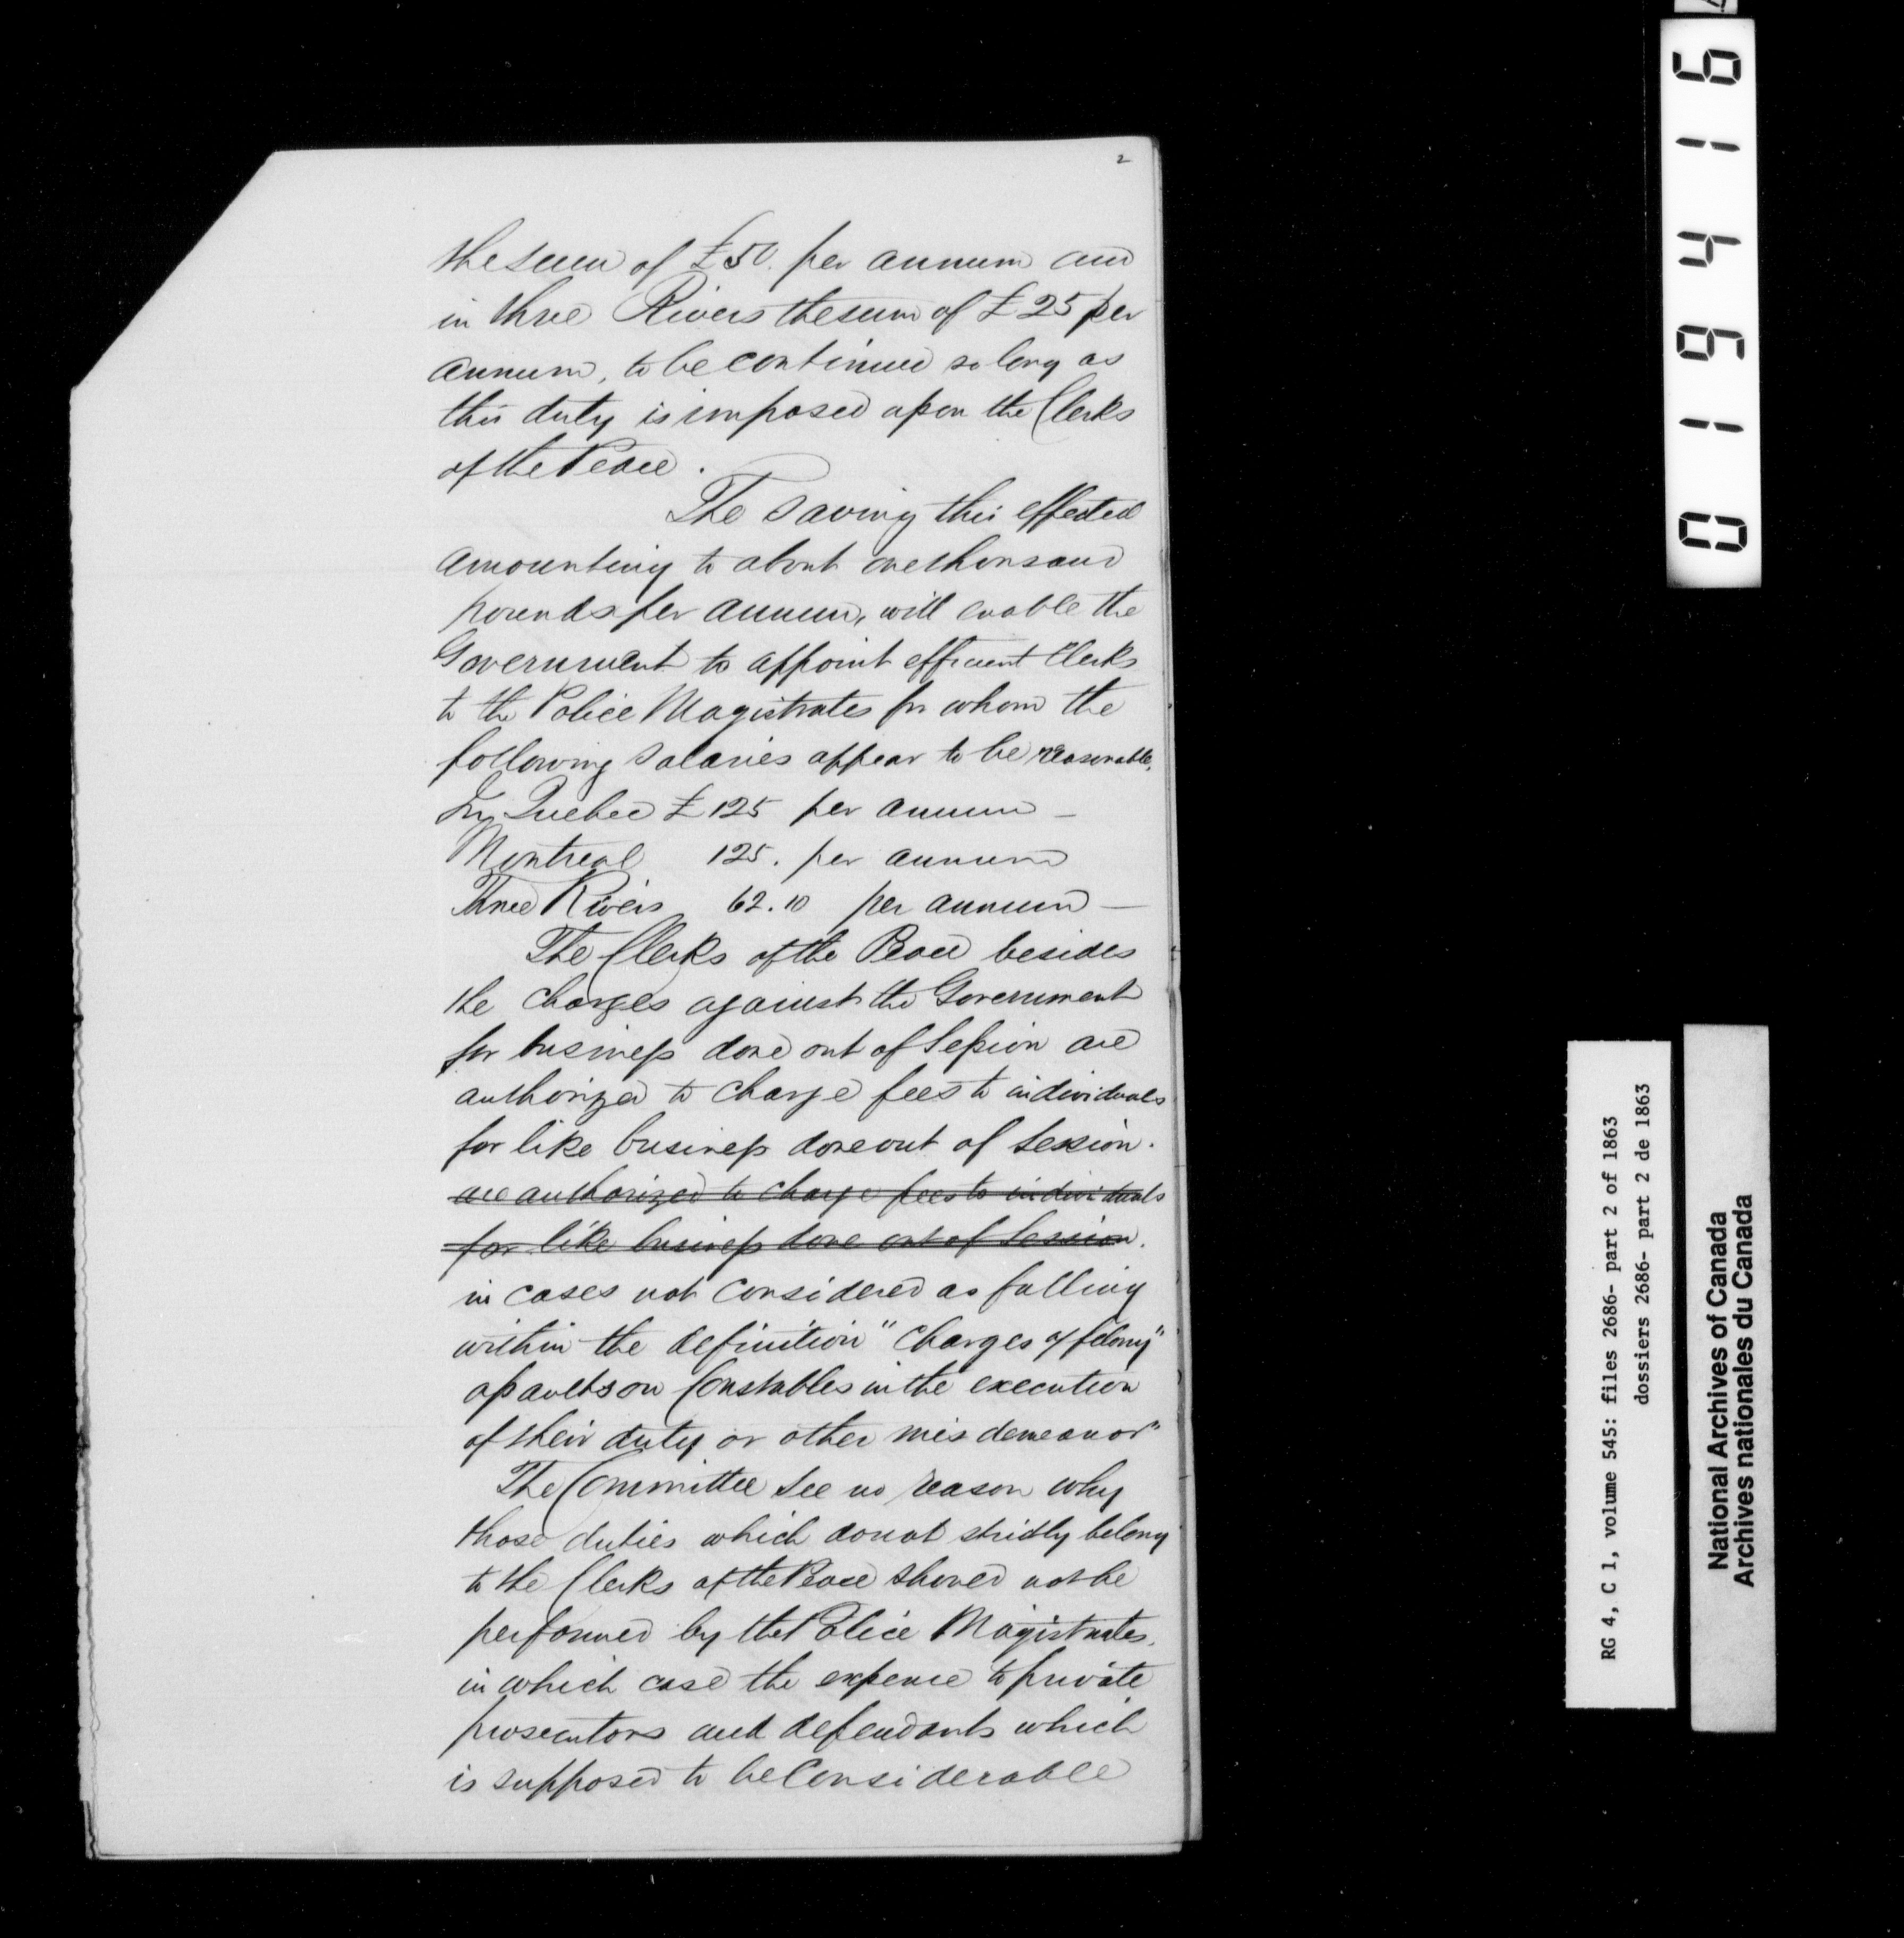 2
the sum of £50. per annum and
in three Rivers the sum of £25 per
annum, to be continued so long as
this duty is imposed upon the Clerks
of the Peace.
The Saving this effected
amounting to about one thousand
pounds per annum, will enable the
Government to appoint efficient Clerks
to the Police Magistrates for whom the
following Salaries appear to be reasonable.
In Quebec £125 per annum —
Montreal 125. per annum
Three Rivers 62.10 per annum —
The Clerks of the Peace besides
the Charges against the Government
for business done out of Session are
authorized to charge fees to individuals
for like business done out of Session.
are authorized to charge fees to individuals
for like business done out of Session.
in cases not considered as falling
within the definition "Charges of felony"
assaults on Constables in the execution
of their duty or other misdemeanor"
The Committee see no reason why
those duties which do not strictly belong
to the Clerks of the Peace should not be
performed by the Police Magistrates,
in which case the expence to private
prosecutors and defendants which
is supposed to be Considerable
019416
RG 4, C 1, volume 545: files 2686- part 2 of 1863
dossiers 2686- part 2 de 1863
National Archives of Canada
Archives nationales du Canada